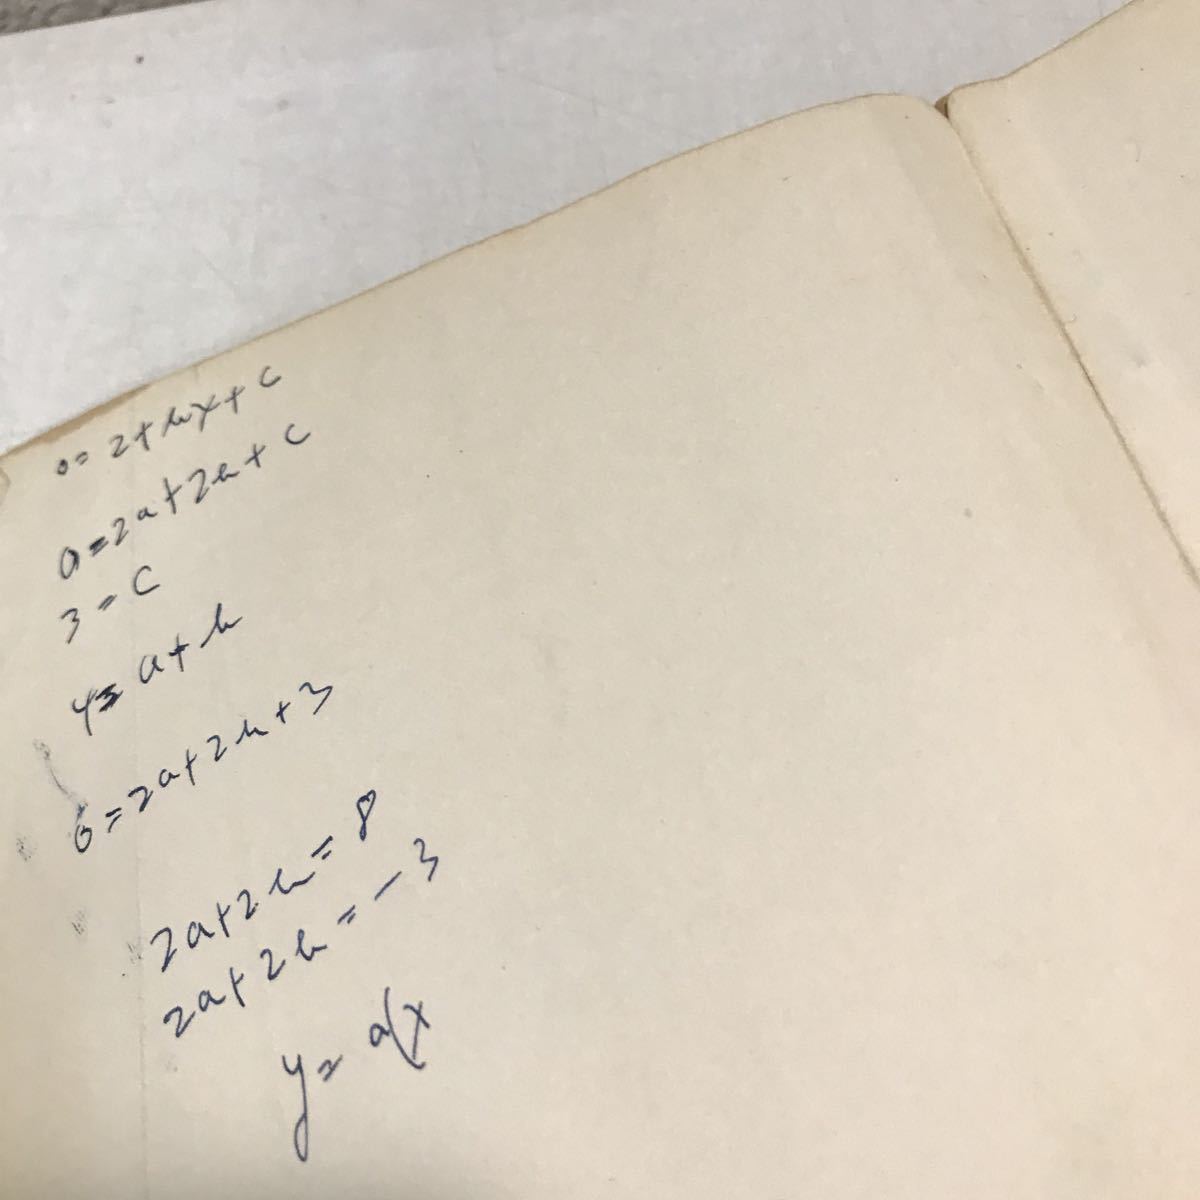 0=2+bx+c
0=2a+2b+c
3=c
4=a+b
0=2a+2b+3
2a+2b=8
2a+2b=-3
y=a(x